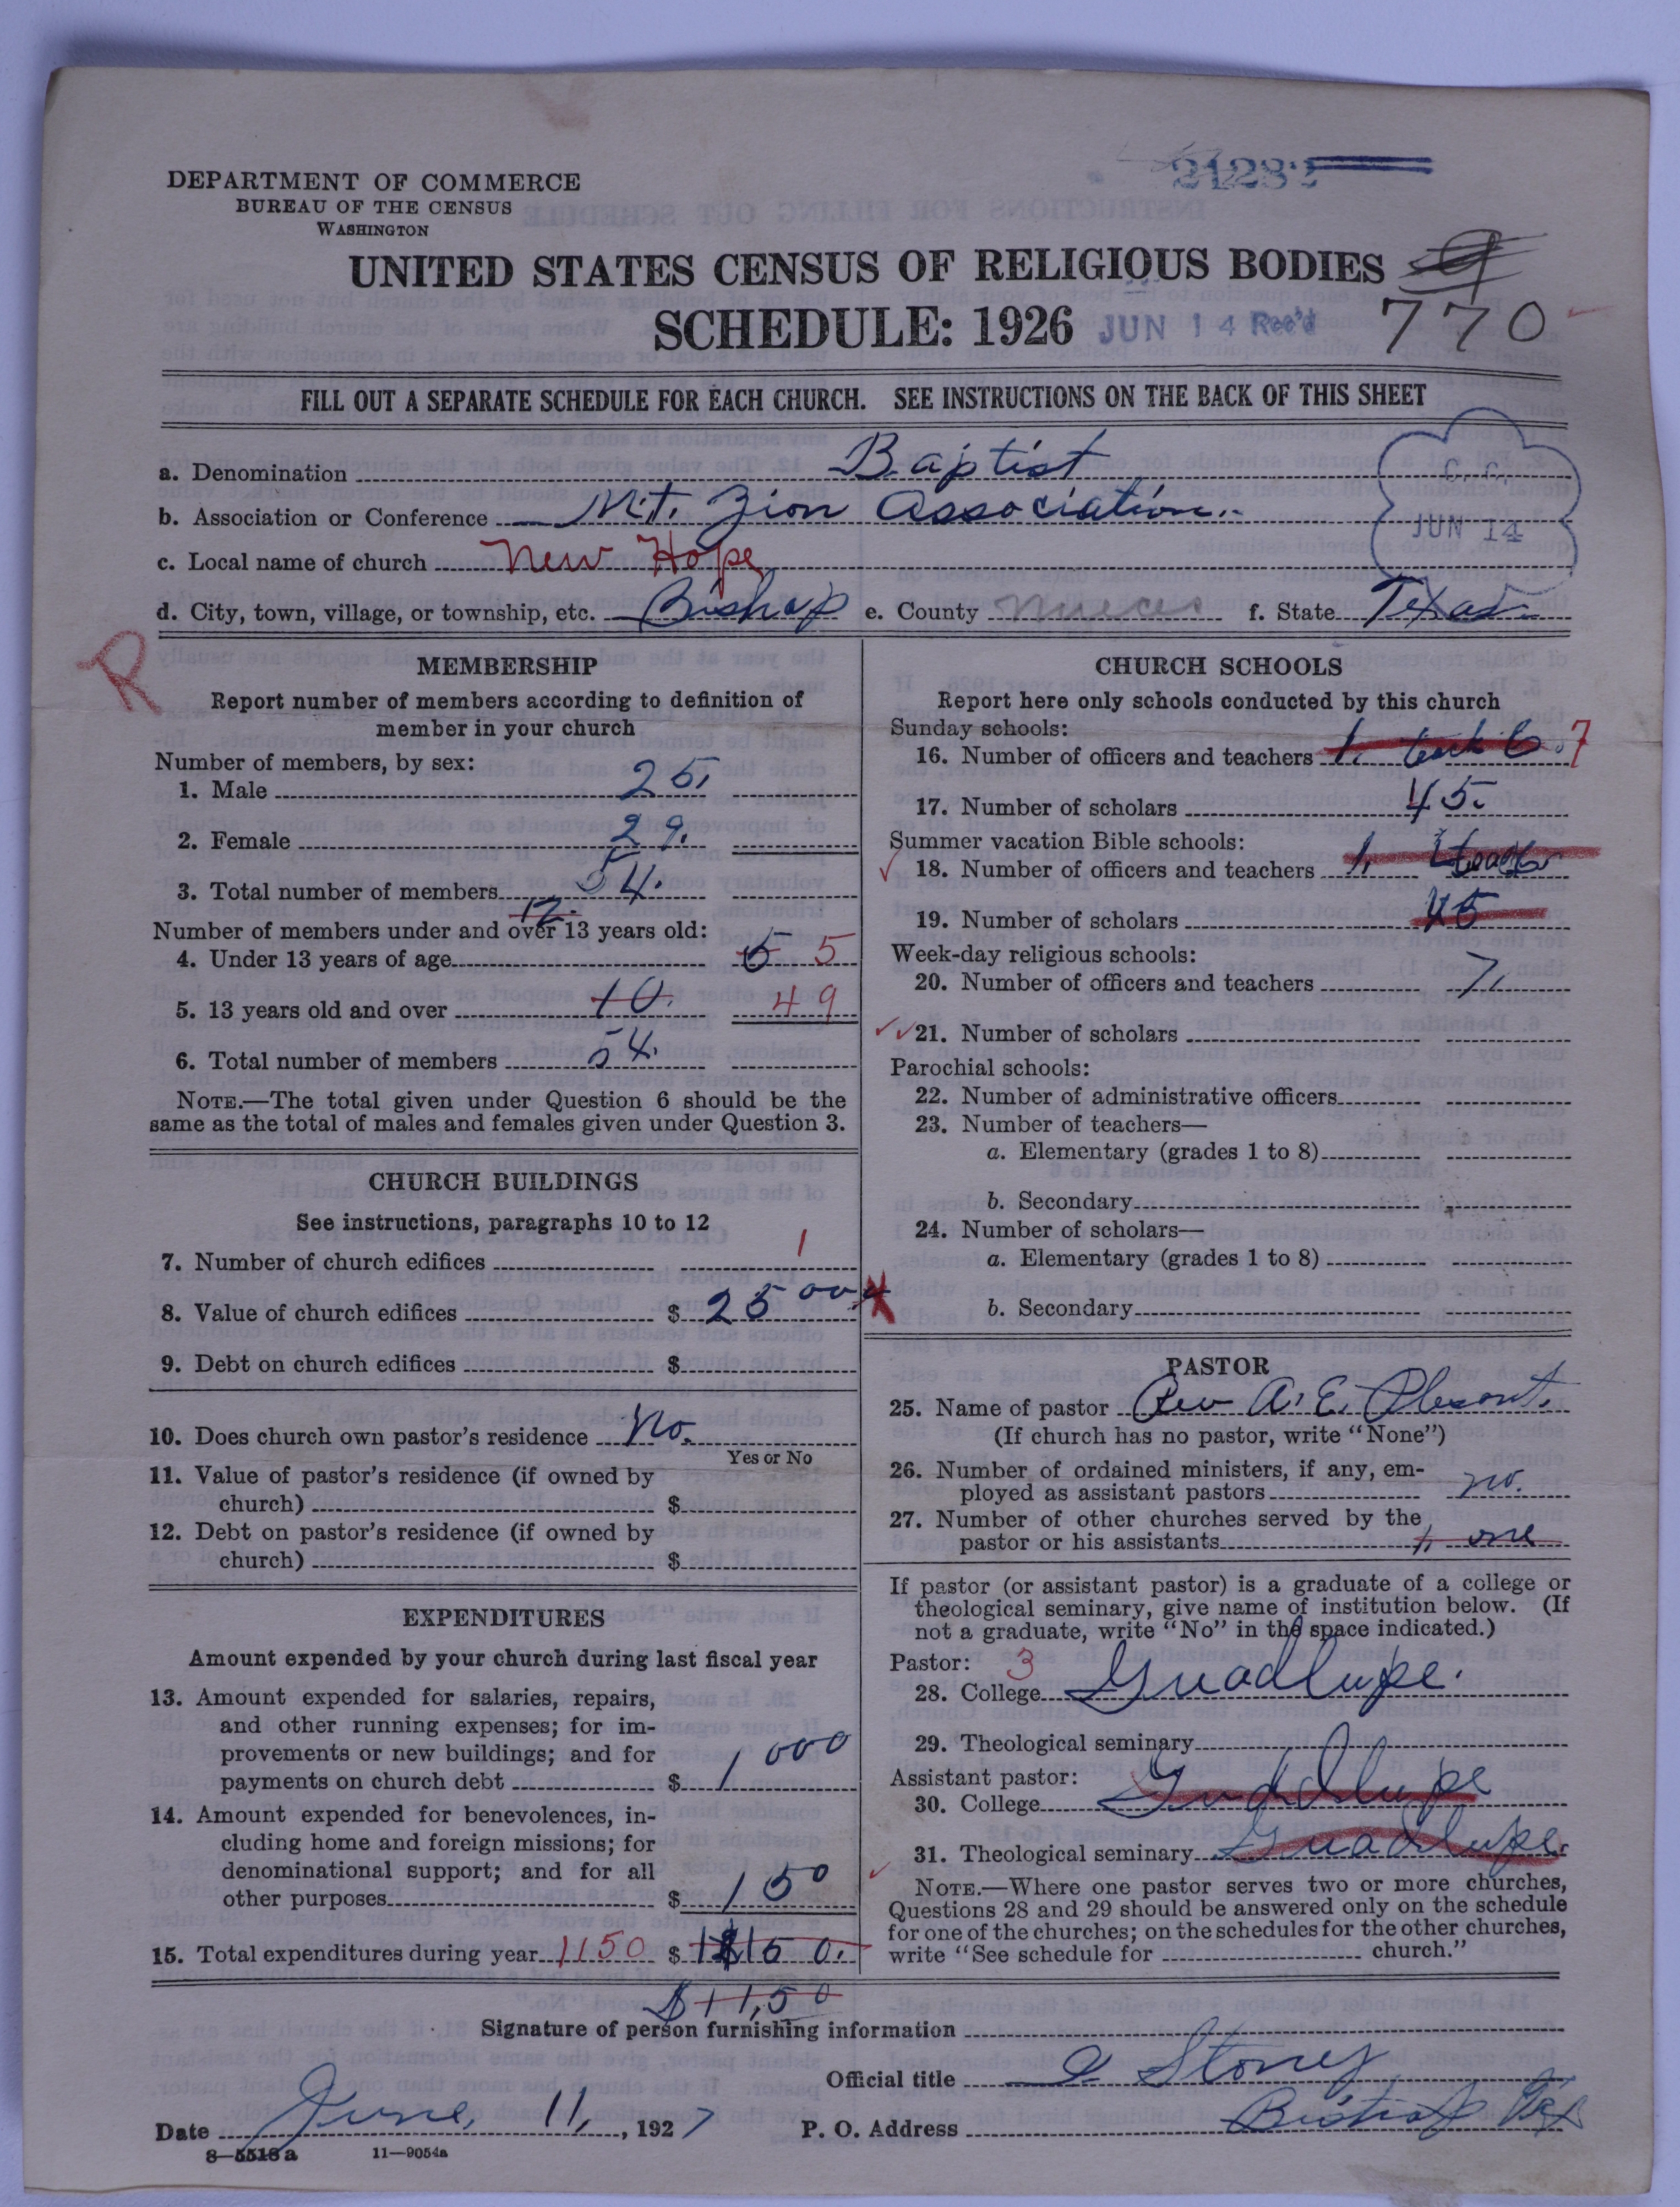 21282
DEPARTMENT OF COMMERCE
BUREAU OF THE CENSUS
WASHINGTON
UNITED STATES CENSUS OF RELIGIOUS BODIES
SCHEDULE: 1926 JUN 14 Rec'd 770
FILL OUT A SEPARATE SCHEDULE FOR EACH CHURCH. SEE INSTRUCTIONS ON THE BACK OF THIS SHEET
a. Denomination Baptist
b. Association or Conference Mt. Zion Association.
JUN 14
c. Local name of church New Hope
d. City, town, village, or township, etc. Bishop e. County Nueces f. State Texas
R
MEMBERSHIP
Report number of members according to definition of
member in your church
Number of members, by sex:
1. Male 25.
2. Female 29.
3. Total number of members 54.
12.
Number of members under and over 13 years old:
4. Under 13 years of age 5 5
5. 13 years old and over 10 49
6. Total number of members 54.
NOTE.—The total given under Question 6 should be the
same as the total of males and females given under Question 3.
CHURCH BUILDINGS
See instructions, paragraphs 10 to 12
7. Number of church edifices 1
8. Value of church edifices $ 2500
9. Debt on church edifices $
10. Does church own pastor's residence No.
Yes or No
11. Value of pastor's residence (if owned by
church) $
12. Debt on pastor's residence (if owned by
church) $
EXPENDITURES
Amount expended by your church during last fiscal year
13. Amount expended for salaries, repairs,
and other running expenses; for im-
provements or new buildings; and for
payments on church debt $ 1000
14. Amount expended for benevolences, in-
cluding home and foreign missions; for
denominational support; and for all
other purposes $ 150
15. Total expenditures during year 1150 $
$11,50
CHURCH SCHOOLS
Report here only schools conducted by this church
Sunday schools:
16. Number of officers and teachers 1. teach 6. 7
17. Number of scholars 45.
Summer vacation Bible schools:
18. Number of officers and teachers 1.
19. Number of scholars 45
Week-day religious schools:
20. Number of officers and teachers 7.
21. Number of scholars
Parochial schools:
22. Number of administrative officers
23. Number of teachers—
a. Elementary (grades 1 to 8)
b. Secondary
24. Number of scholars—
a. Elementary (grades 1 to 8)
b. Secondary
PASTOR
25. Name of pastor Rev A. E. Plesant.
(If church has no pastor, write "None")
26. Number of ordained ministers, if any, em-
ployed as assistant pastors no.
27. Number of other churches served by the
pastor or his assistants 1, one
If pastor (or assistant pastor) is a graduate of a college or
theological seminary, give name of institution below. (If
not a graduate, write "No" in the space indicated.)
Pastor: 3
28. College Guadlupe.
29. Theological seminary
Assistant pastor:
30. College Guddlupe
31. Theological seminary Guadlupe
NOTE.—Where one pastor serves two or more churches,
Questions 28 and 29 should be answered only on the schedule
for one of the churches; on the schedules for the other churches,
write "See schedule for church."
Signature of person furnishing information
Official title Storey
Date June, 11, 1927 P. O. Address Bishop Tex
8—5518 a 11—9054a